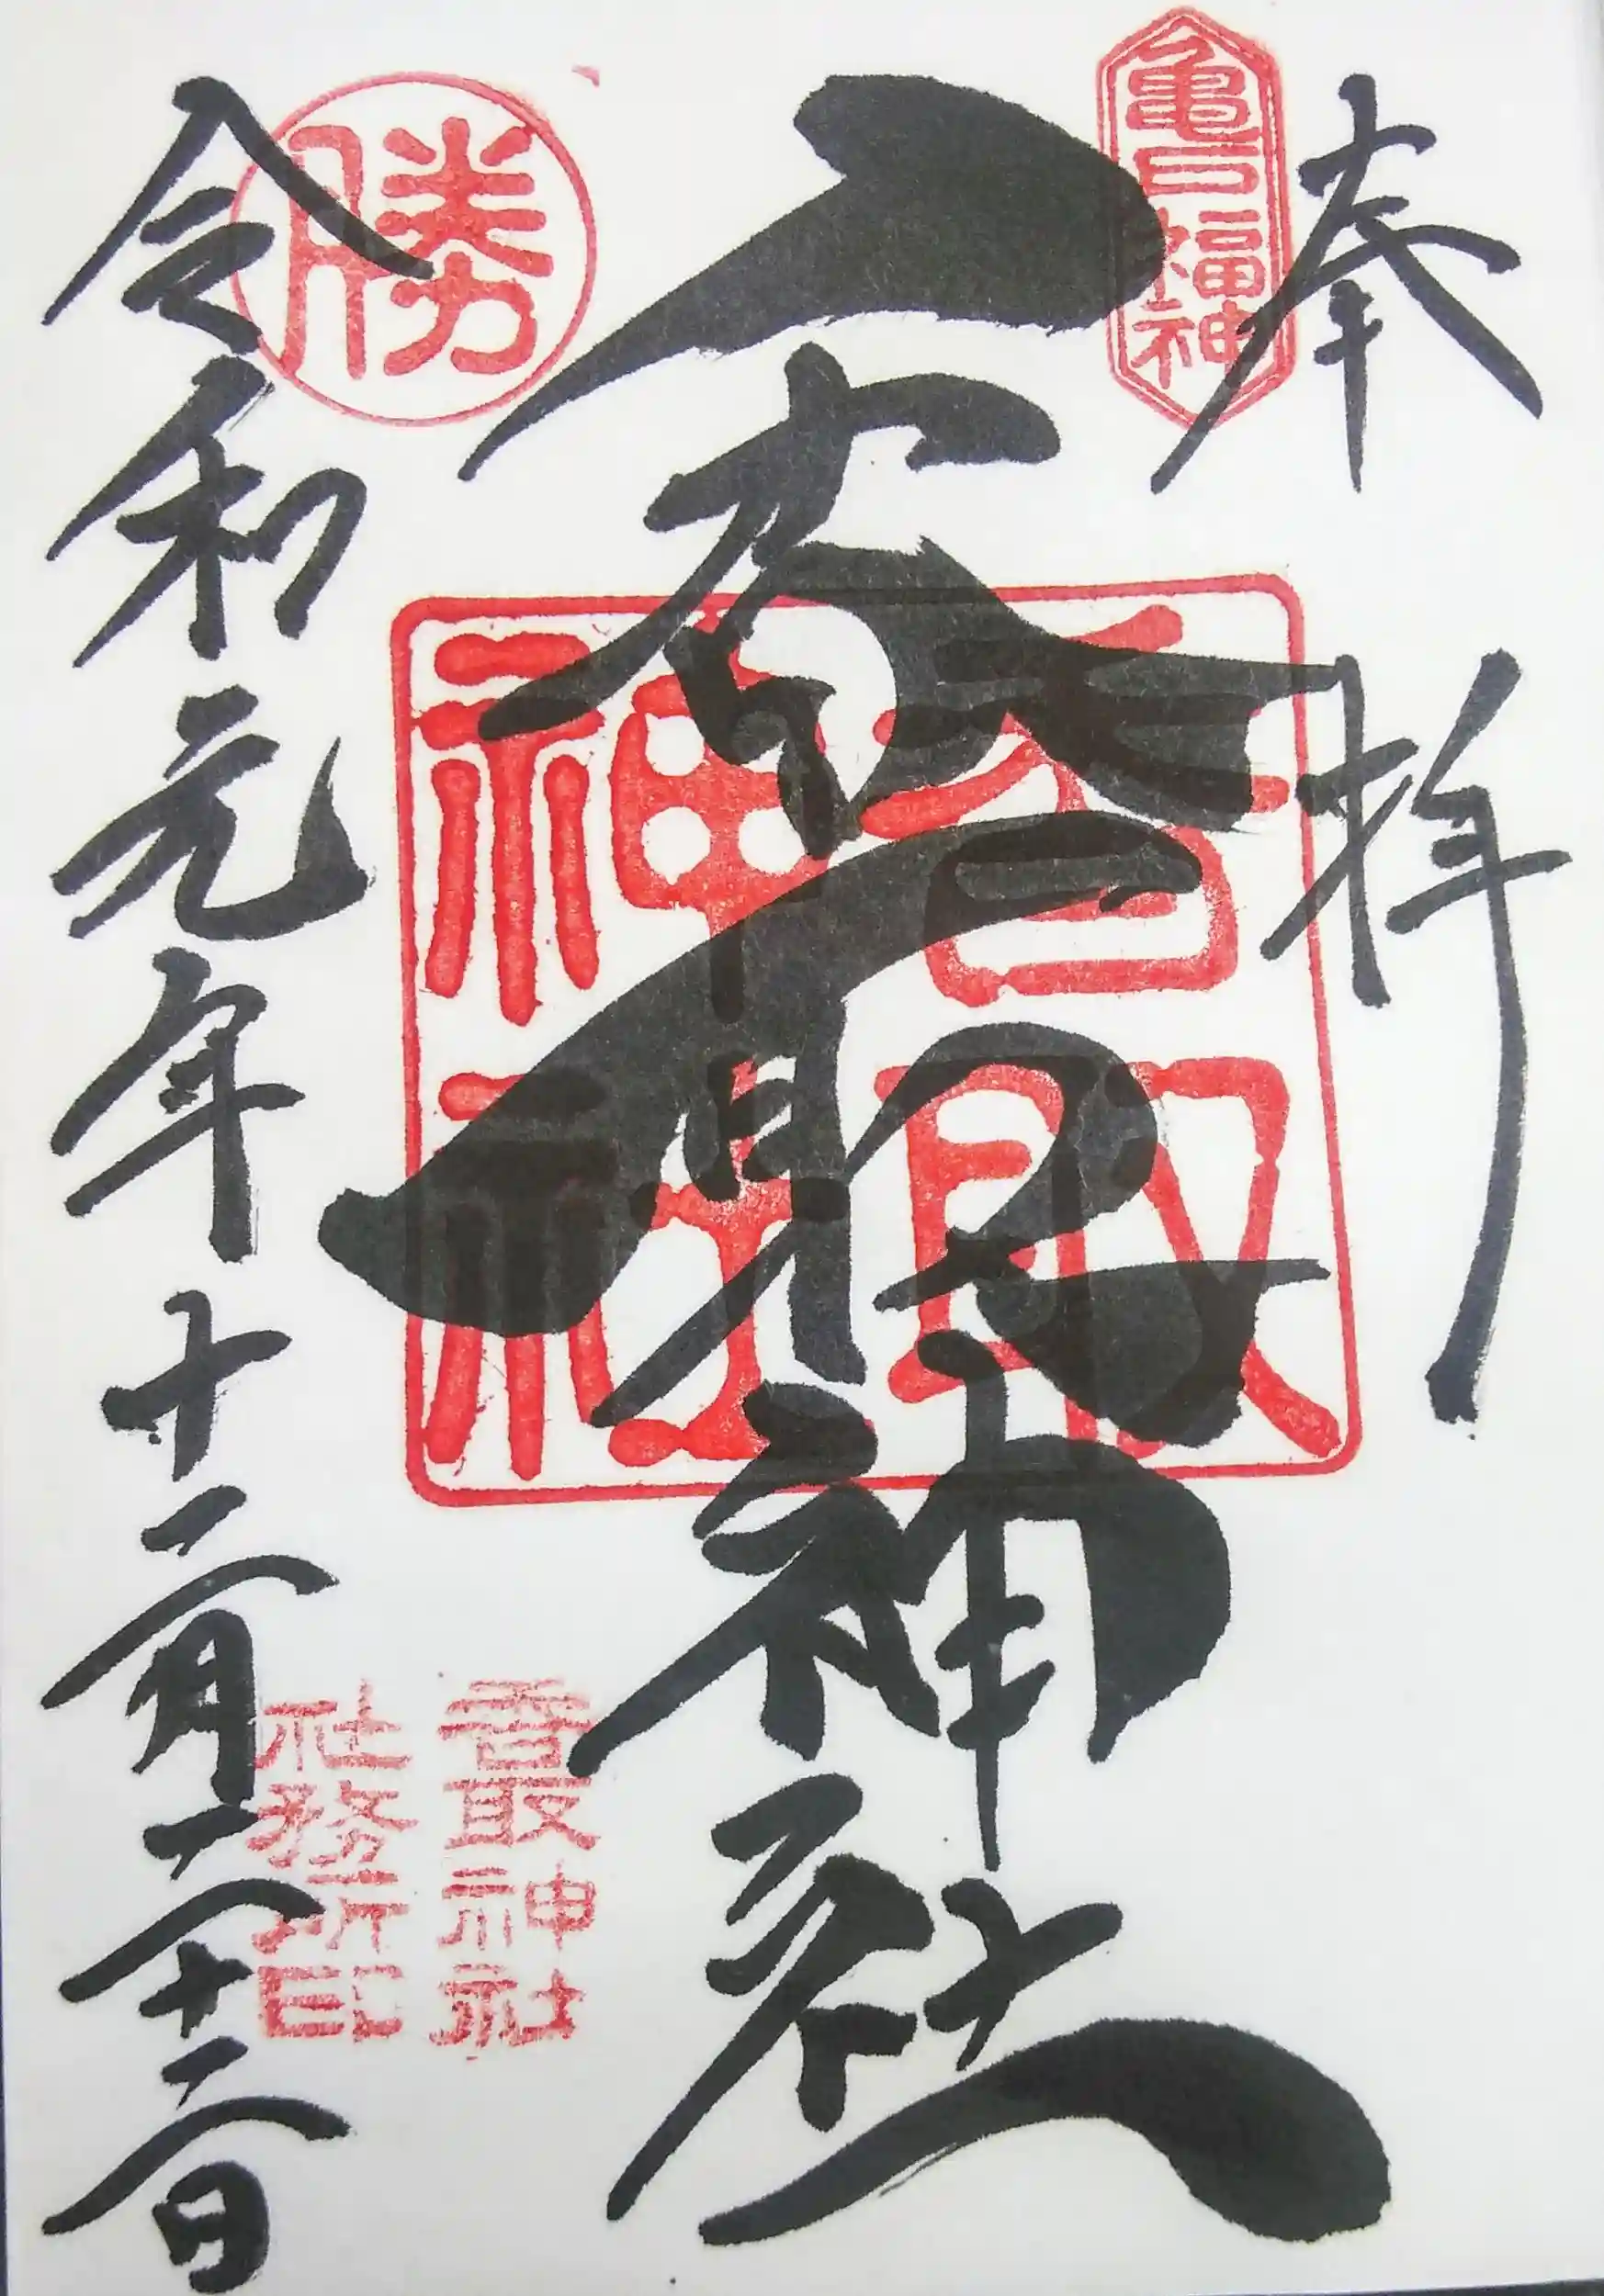 奉拝
亀戸福神
香取神社
香取
神社
勝
香取神社
社務所印
令和元年十二月二十二日